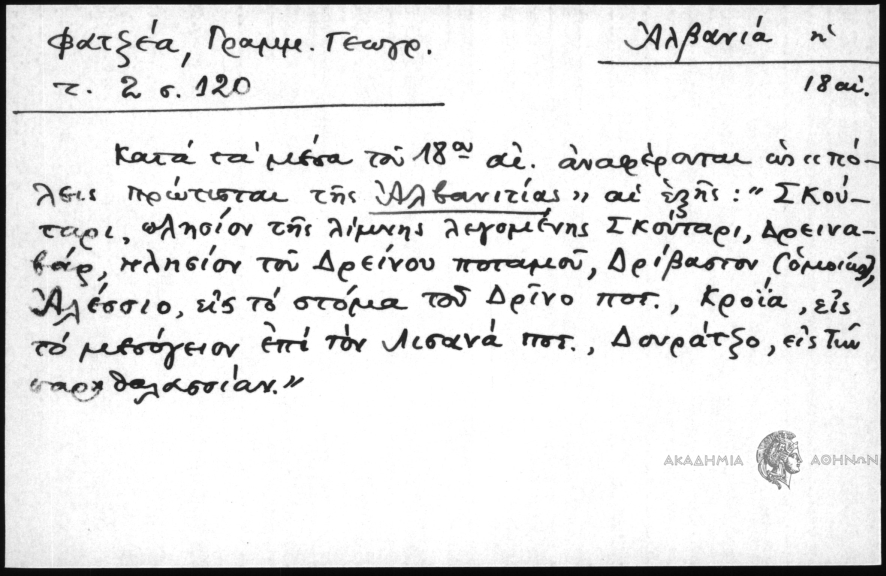 Φατζέα, Γραμμ. Γεωγρ.
τ. 2 σ. 120
Ἀλβανία
18 αἰ.
Κατά τα μέσα τοῦ 18ου αἰ. ἀναφέρονται ὡς «πό-
λεις πρώτισται τῆς Ἀλβανιτίας» αἱ ἑξῆς: "Σκού-
ταρι, πλησίον τῆς λίμνης λεγομένης Σκόνταρι, Δρεινα-
βάρ, πλησίον τοῦ Δρείνου ποταμοῦ, Δρίβαστον (ὁμοίως),
Ἀλέσσιο, εἰς τό στόμα τοῦ Δρῖνο ποτ., Κροΐα, εἰς
τό μεσόγειον ἐπί τόν Λισανά ποτ., Δουράτζο, εἰς τήν
παραθαλασσίαν."
ΑΚΑΔΗΜΙΑ ΑΘΗΝΩΝ